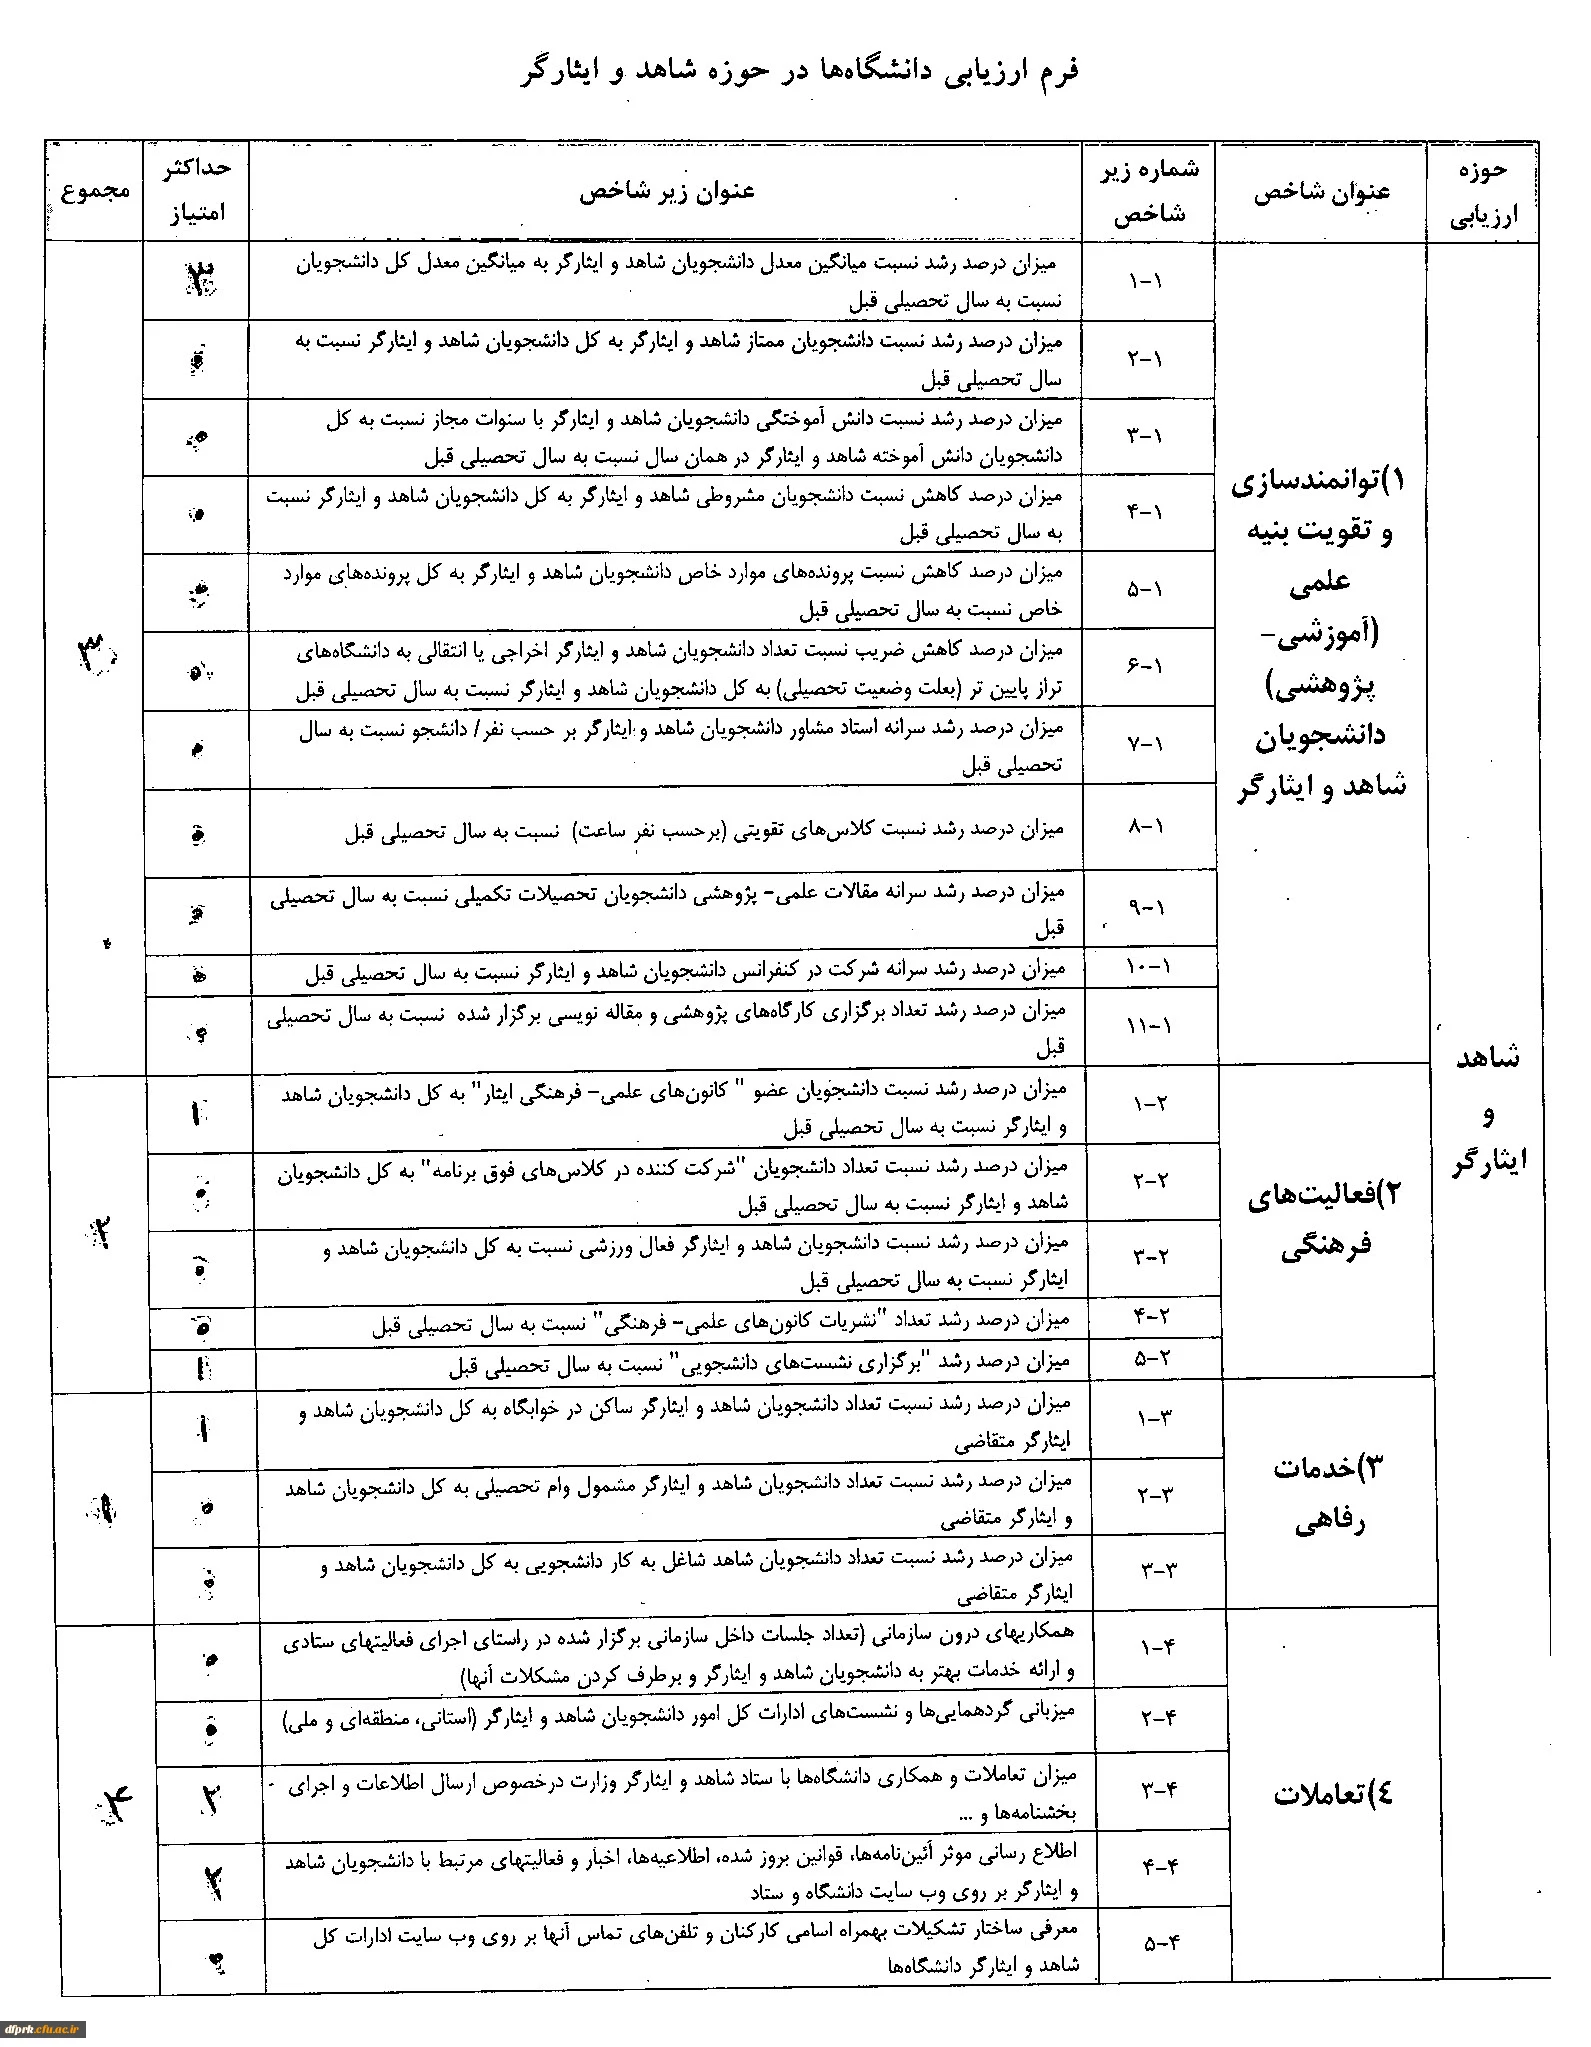 فرم ارزیابی دانشگاه‌ها در حوزه شاهد و ایثارگر
حوزه ارزیابی
عنوان شاخص
شماره زیر شاخص
عنوان زیر شاخص
حداکثر امتیاز
مجموع
شاهد
و
ایثارگر
۱)توانمندسازی
و تقویت بنیه
علمی
(آموزشی-
پژوهشی)
دانشجویان
شاهد و ایثارگر
۱-۱
میزان درصد رشد نسبت میانگین معدل دانشجویان شاهد و ایثارگر به میانگین معدل کل دانشجویان
نسبت به سال تحصیلی قبل
۳
۲-۱
میزان درصد رشد نسبت دانشجویان ممتاز شاهد و ایثارگر به کل دانشجویان شاهد و ایثارگر نسبت به
سال تحصیلی قبل
۳-۱
میزان درصد رشد نسبت دانش آموختگی دانشجویان شاهد و ایثارگر با سنوات مجاز نسبت به کل
دانشجویان دانش آموخته شاهد و ایثارگر در همان سال نسبت به سال تحصیلی قبل
۴-۱
میزان درصد کاهش نسبت دانشجویان مشروطی شاهد و ایثارگر به کل دانشجویان شاهد و ایثارگر نسبت
به سال تحصیلی قبل
۵-۱
میزان درصد کاهش نسبت پرونده‌های موارد خاص دانشجویان شاهد و ایثارگر به کل پرونده‌های موارد
خاص نسبت به سال تحصیلی قبل
۶-۱
میزان درصد کاهش ضریب نسبت تعداد دانشجویان شاهد و ایثارگر اخراجی یا انتقالی به دانشگاه‌های
تراز پایین تر (بعلت وضعیت تحصیلی) به کل دانشجویان شاهد و ایثارگر نسبت به سال تحصیلی قبل
۷-۱
میزان درصد رشد سرانه استاد مشاور دانشجویان شاهد و ایثارگر بر حسب نفر/ دانشجو نسبت به سال
تحصیلی قبل
۸-۱
میزان درصد رشد نسبت کلاس‌های تقویتی (برحسب نفر ساعت) نسبت به سال تحصیلی قبل
۹-۱
میزان درصد رشد سرانه مقالات علمی- پژوهشی دانشجویان تحصیلات تکمیلی نسبت به سال تحصیلی
قبل
۱۰-۱
میزان درصد رشد سرانه شرکت در کنفرانس دانشجویان شاهد و ایثارگر نسبت به سال تحصیلی قبل
۱۱-۱
میزان درصد رشد تعداد برگزاری کارگاه‌های پژوهشی و مقاله نویسی برگزار شده نسبت به سال تحصیلی
قبل
۲)فعالیت‌های
فرهنگی
۱-۲
میزان درصد رشد نسبت دانشجویان عضو " کانون‌های علمی- فرهنگی ایثار" به کل دانشجویان شاهد
و ایثارگر نسبت به سال تحصیلی قبل
۲-۲
میزان درصد رشد نسبت تعداد دانشجویان "شرکت کننده در کلاس‌های فوق برنامه" به کل دانشجویان
شاهد و ایثارگر نسبت به سال تحصیلی قبل
۳-۲
میزان درصد رشد نسبت دانشجویان شاهد و ایثارگر فعال ورزشی نسبت به کل دانشجویان شاهد و
ایثارگر نسبت به سال تحصیلی قبل
۴-۲
میزان درصد رشد تعداد "نشریات کانون‌های علمی- فرهنگی" نسبت به سال تحصیلی قبل
۵-۲
میزان درصد رشد "برگزاری نشست‌های دانشجویی" نسبت به سال تحصیلی قبل
۳)خدمات
رفاهی
۱-۳
میزان درصد رشد نسبت تعداد دانشجویان شاهد و ایثارگر ساکن در خوابگاه به کل دانشجویان شاهد و
ایثارگر متقاضی
۲-۳
میزان درصد رشد نسبت تعداد دانشجویان شاهد و ایثارگر مشمول وام تحصیلی به کل دانشجویان شاهد
و ایثارگر متقاضی
۳-۳
میزان درصد رشد نسبت تعداد دانشجویان شاهد شاغل به کار دانشجویی به کل دانشجویان شاهد و
ایثارگر متقاضی
٤)تعاملات
۱-۴
همکاریهای درون سازمانی (تعداد جلسات داخل سازمانی برگزار شده در راستای اجرای فعالیتهای ستادی
و ارائه خدمات بهتر به دانشجویان شاهد و ایثارگر و برطرف کردن مشکلات آنها)
۲-۴
میزبانی گردهمایی‌ها و نشست‌های ادارات کل امور دانشجویان شاهد و ایثارگر (استانی، منطقه‌ای و ملی)
۳-۴
میزان تعاملات و همکاری دانشگاه‌ها با ستاد شاهد و ایثارگر وزارت درخصوص ارسال اطلاعات و اجرای
بخشنامه‌ها و ...
۲
۴-۴
اطلاع رسانی موثر آئین‌نامه‌ها، قوانین بروز شده، اطلاعیه‌ها، اخبار و فعالیتهای مرتبط با دانشجویان شاهد
و ایثارگر بر روی وب سایت دانشگاه و ستاد
۵-۴
معرفی ساختار تشکیلات بهمراه اسامی کارکنان و تلفن‌های تماس آنها بر روی وب سایت ادارات کل
شاهد و ایثارگر دانشگاه‌ها
dfprk.cfu.ac.ir